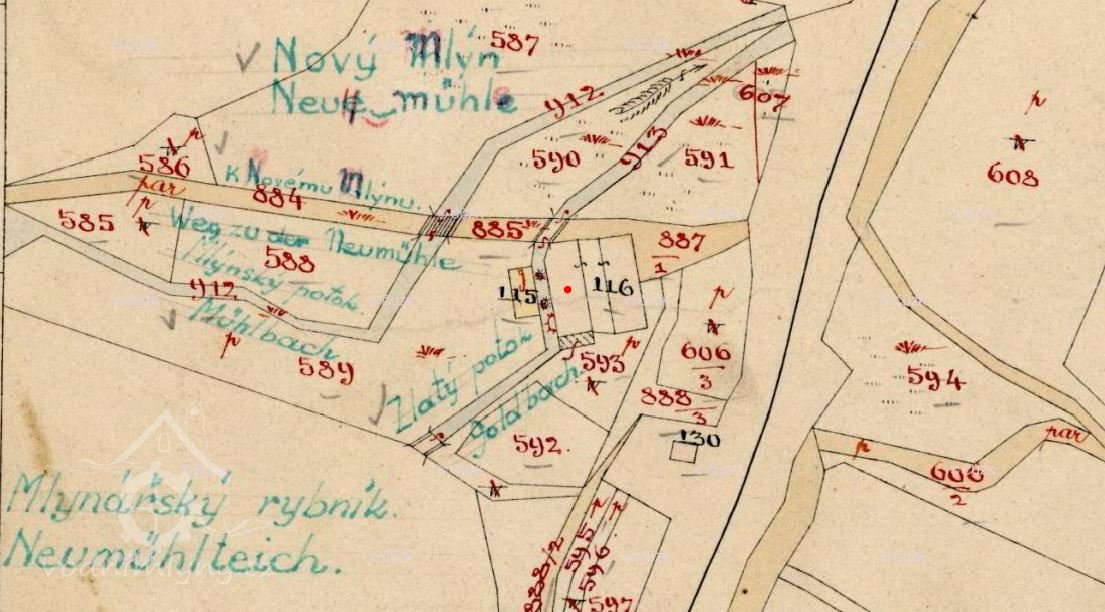 587
Nový Mlýn
Neue mühle
912
607
p
586
p
590
913
591
608
K Novému Mlýnu.
par
884
p
585
Weg zu der Neumühle
885
887
1
588
Mlýnský potok.
115
116
p
912
Mühlbach
p
589
593
p
606
3
594
Zlatý potok
Goldbach.
888
3
130
592.
p
par
608
2
Mlynářský rybník.
Neumühlteich.
888/2
595
p
596
p
597